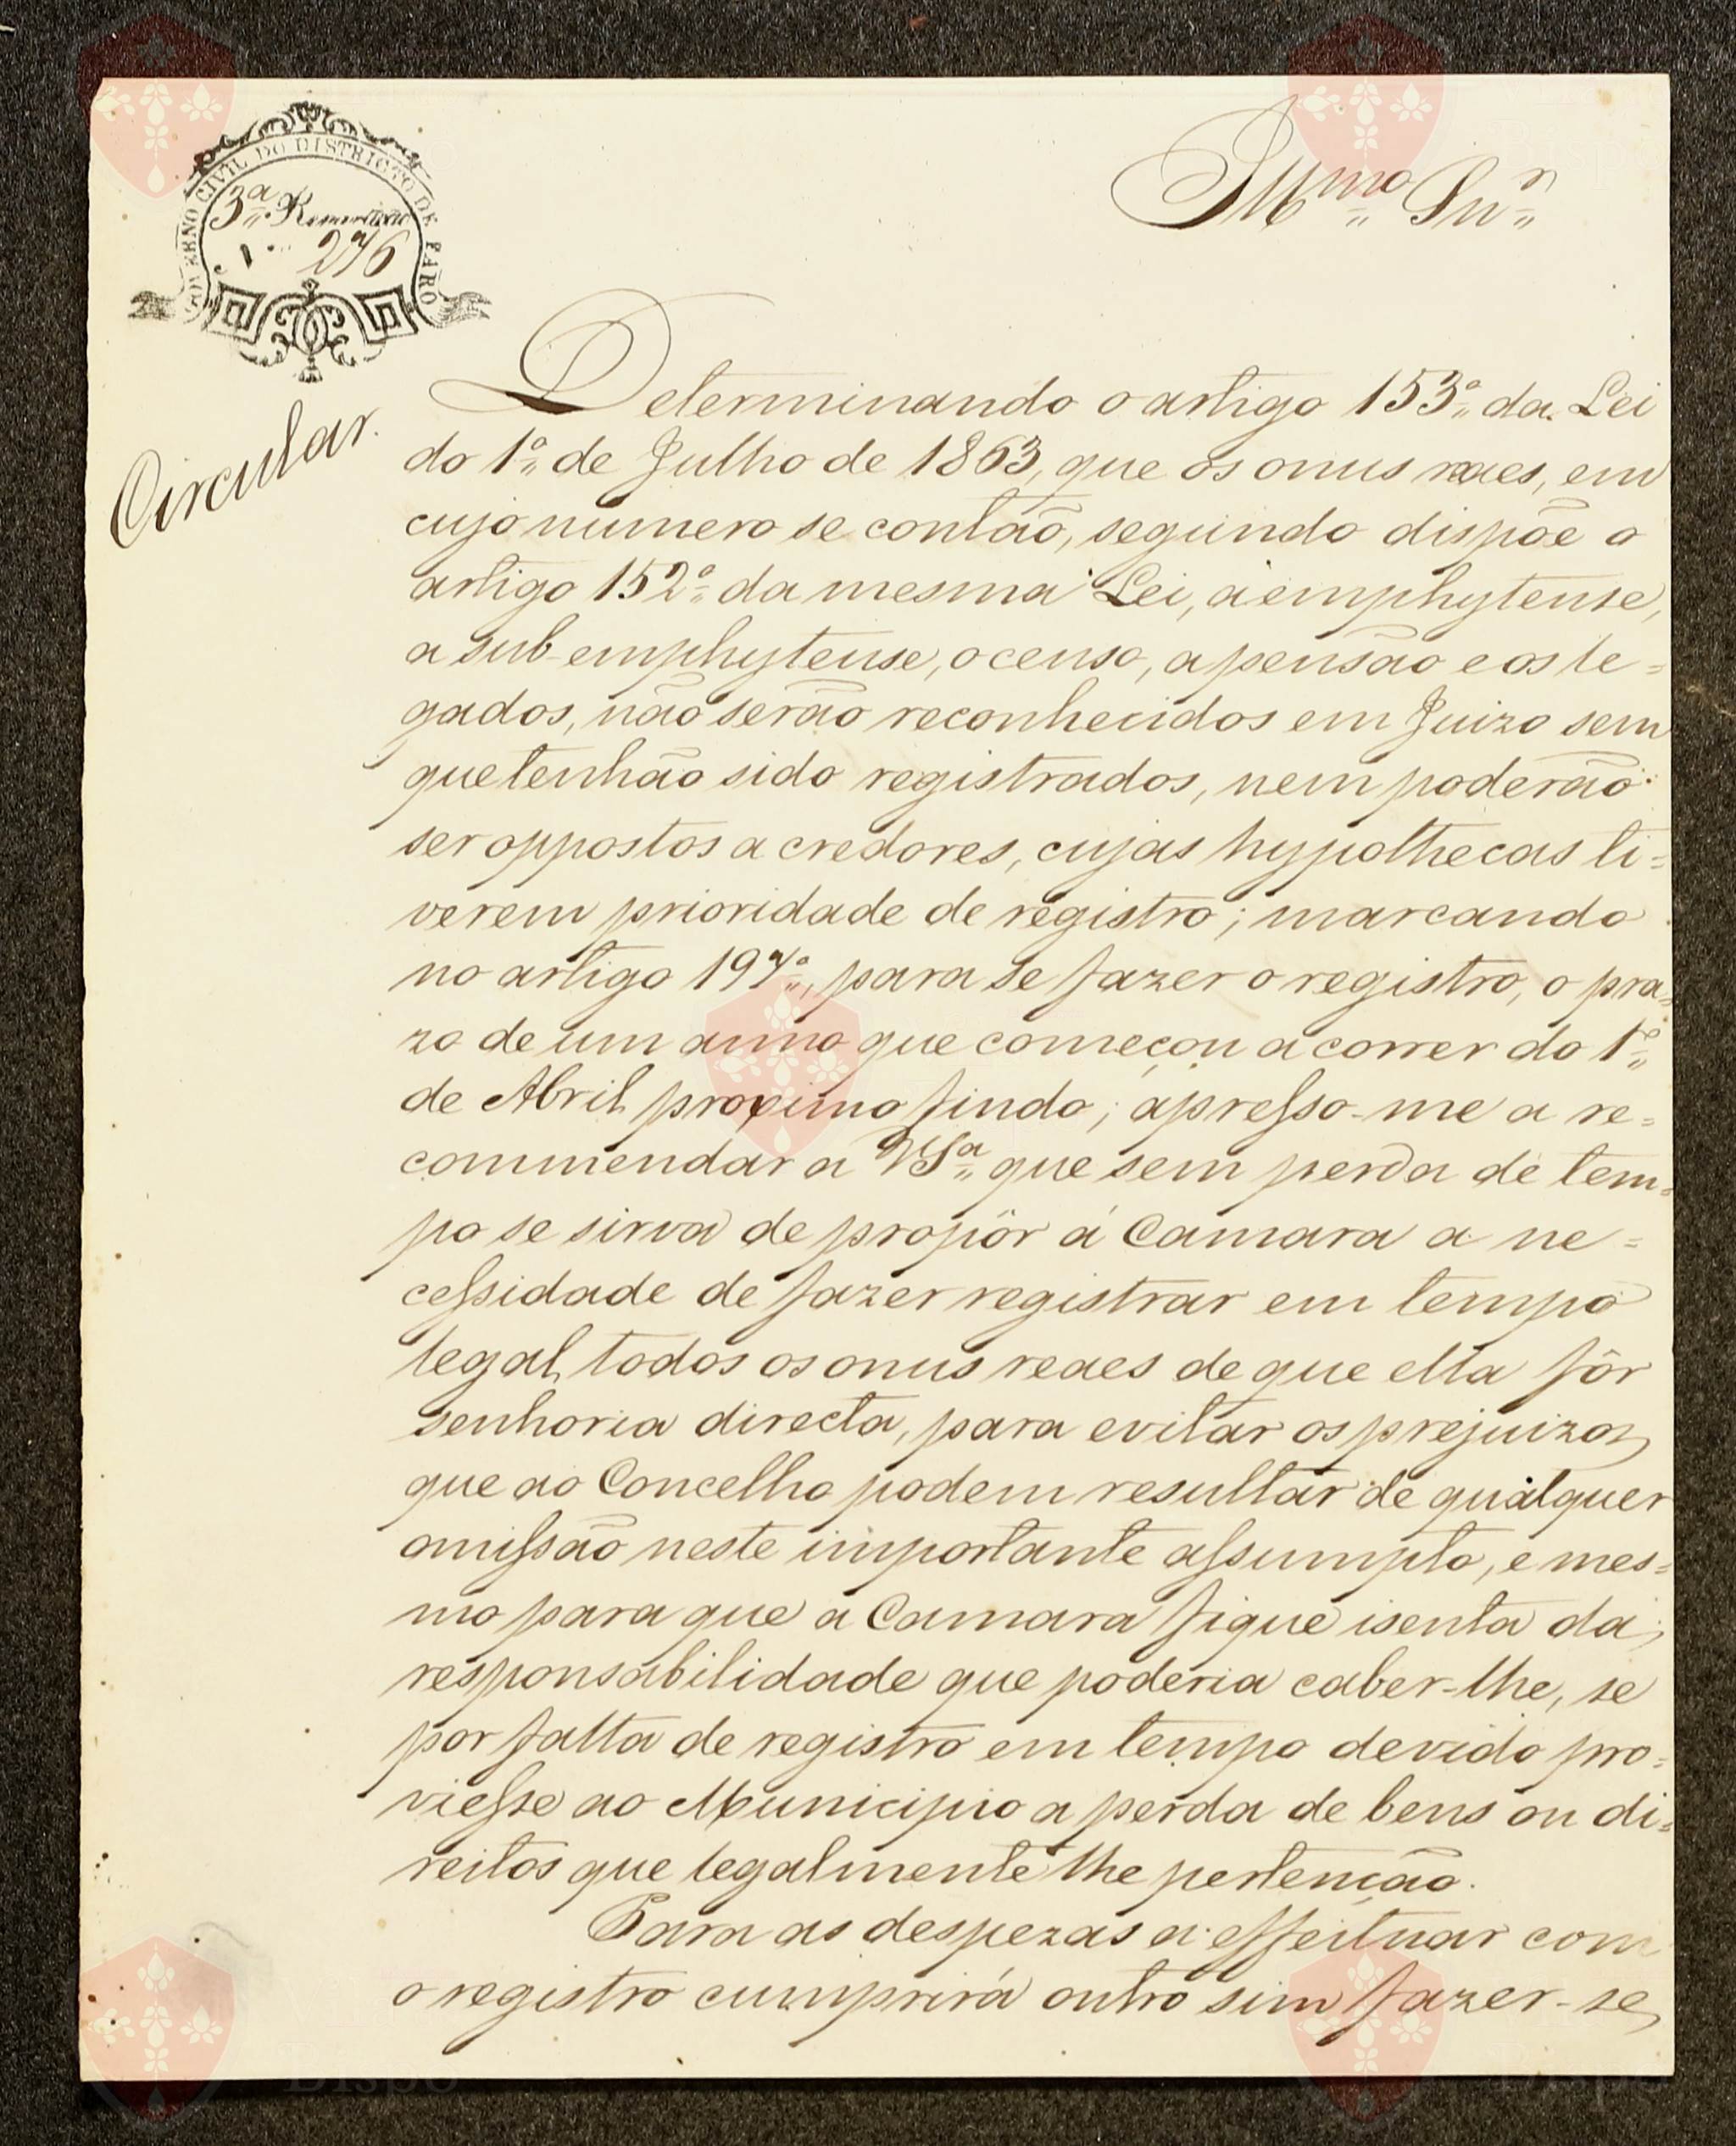 GOVERNO CIVIL DO DISTRICTO DE FARO
3ª Repartição
N.º 276
Illmo Snr
Circular.
Determinando o artigo 153º da Lei
do 1º de Julho de 1863, que os onus reaes, em
cujo numero se contão, segundo dispõe o
artigo 152º da mesma Lei, a emphyteuse,
a sub-emphyteuse, o censo, a pensão e os le=
gados, não serão reconhecidos em Juizo sem
que tenhão sido registrados, nem poderão
ser oppostos a credores, cujas hypothecas ti=
verem prioridade de registro; marcando
no artigo 197º, para se fazer o registro, o pra=
zo de um anno que começou a correr do 1º
de Abril proximo findo; apresso-me a re=
commendar a VSª que sem perda de tem=
po se sirva de propôr á Camara a ne=
cessidade de fazer registrar em tempo
legal, todos os onus reaes de que ella fôr
senhoria directa, para evitar os prejuizos
que ao Concelho podem resultar de qualquer
omissão neste importante assumpto, e mes=
mo para que a Camara fique isenta da
responsabilidade que poderia caber-lhe, se
por falta de registro em tempo devido pro=
viesse ao Municipio a perda de bens ou di=
reitos que legalmente lhe pertenção.
Para as despezas a effeituar com
o registro cumprirá outro sim fazer-se